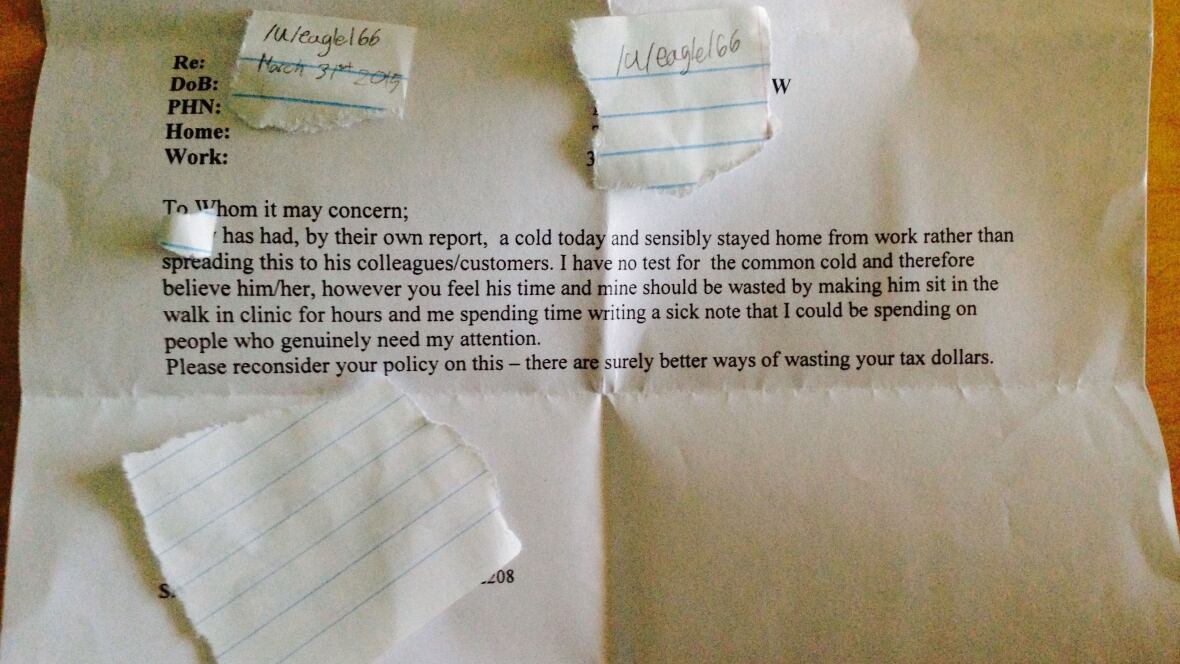 /u/eagle166
March 31st 2015
/u/eagle166
Re:
DoB:
W
PHN:
Home:
Work:
3
To Whom it may concern;
has had, by their own report, a cold today and sensibly stayed home from work rather than
spreading this to his colleagues/customers. I have no test for the common cold and therefore
believe him/her, however you feel his time and mine should be wasted by making him sit in the
walk in clinic for hours and me spending time writing a sick note that I could be spending on
people who genuinely need my attention.
Please reconsider your policy on this – there are surely better ways of wasting your tax dollars.
S
208